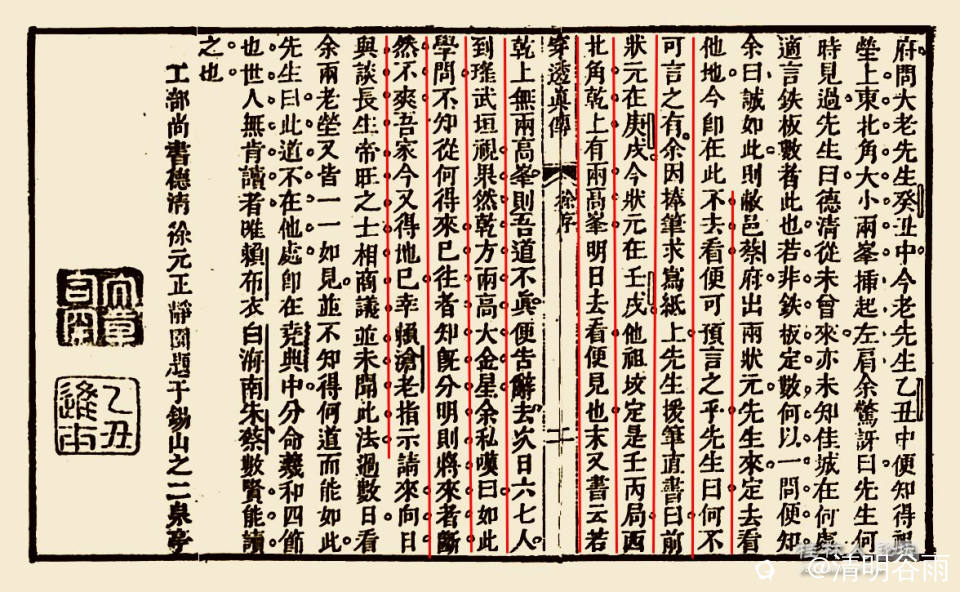 府問大老先生癸丑中今老先生乙丑中便知得祖
塋上東北角大小兩峯揷起左肩余驚訝曰先生何
時見過先生曰德清從未曾來亦未知佳城在何處
適言鉄板數者此也若非鉄板定數何以一問便知
余曰誠如此則敝邑蔡府出兩狀元先生來定去看
他地今卽在此不去看便可預言之乎先生曰何不
可言之有余因捧筆求寫紙上先生援筆直書曰前
狀元在庚戌今狀元在壬戌他祖坟定是壬丙局西
北角乾上有兩高峯明日去看便見也末又書云若
穿透眞傳
徐序
二
乾上無兩高峯則吾道不眞便告辭去次日六七人
到瑤武垣視果然乾方兩高大金星余私嘆曰如此
學問不知從何得來已往者知旣分明則將來者斷
然不爽吾家今又得地已幸賴滄老指示請來向日
與談長生帝旺之士相商議並未聞此法過數日看
余兩老塋又皆一一如見並不知得何道而能如此
先生曰此道不在他處卽在堯典中分命羲和四節
也世人無肯讀者唯賴布衣白濟南朱蔡數賢能讀
之也
工部尚書德清徐元正靜園題于錫山之二泉亭
乙丑進士
@清明谷雨